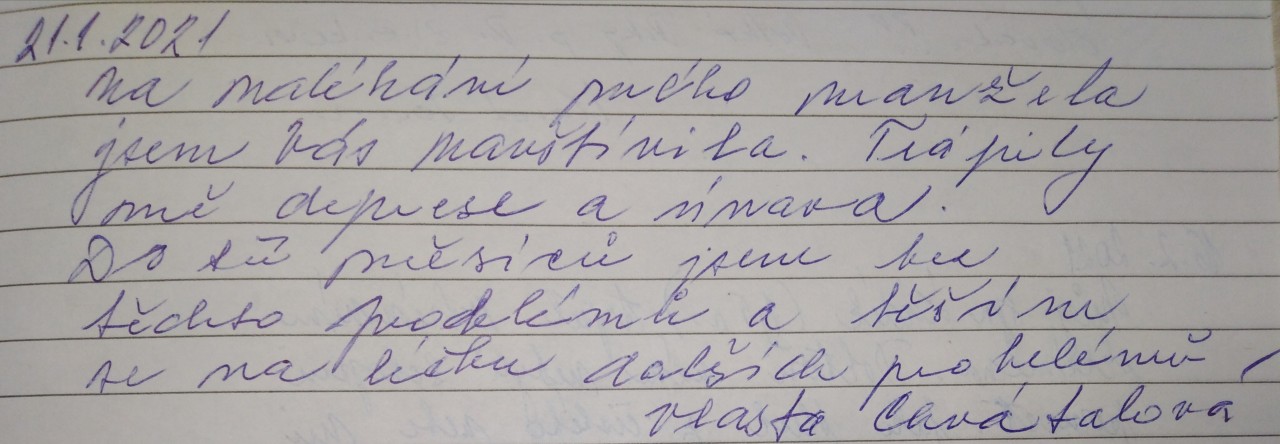 21.1.2021
na naléhání mého manžela
jsem Vás navštívila. Trápily
mě deprese a únava.
Do tří měsíců jsem bez
těchto problémů a těším
se na léčbu dalších problémů
Vlasta Chvátalová